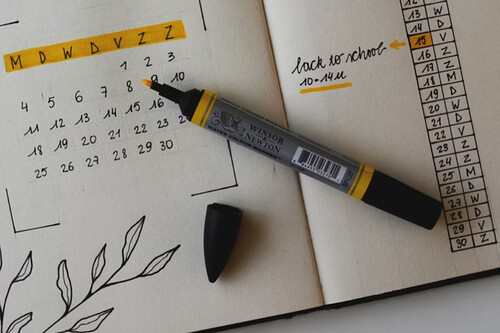 M D W D V Z Z
1 2 3
4 5 6 7 8 9 10
11 12 13 14 15 16 17
18 19 20 21 22 23
25 26 27 28 29 30
back to school
10-14u
WINSOR
NEWTON
12
13 W
14 D
15 V
16 Z
17 Z
18 M
19 D
20 W
21 D
22 V
23 Z
24 Z
25 M
26 D
27 W
28 D
29 V
30 Z